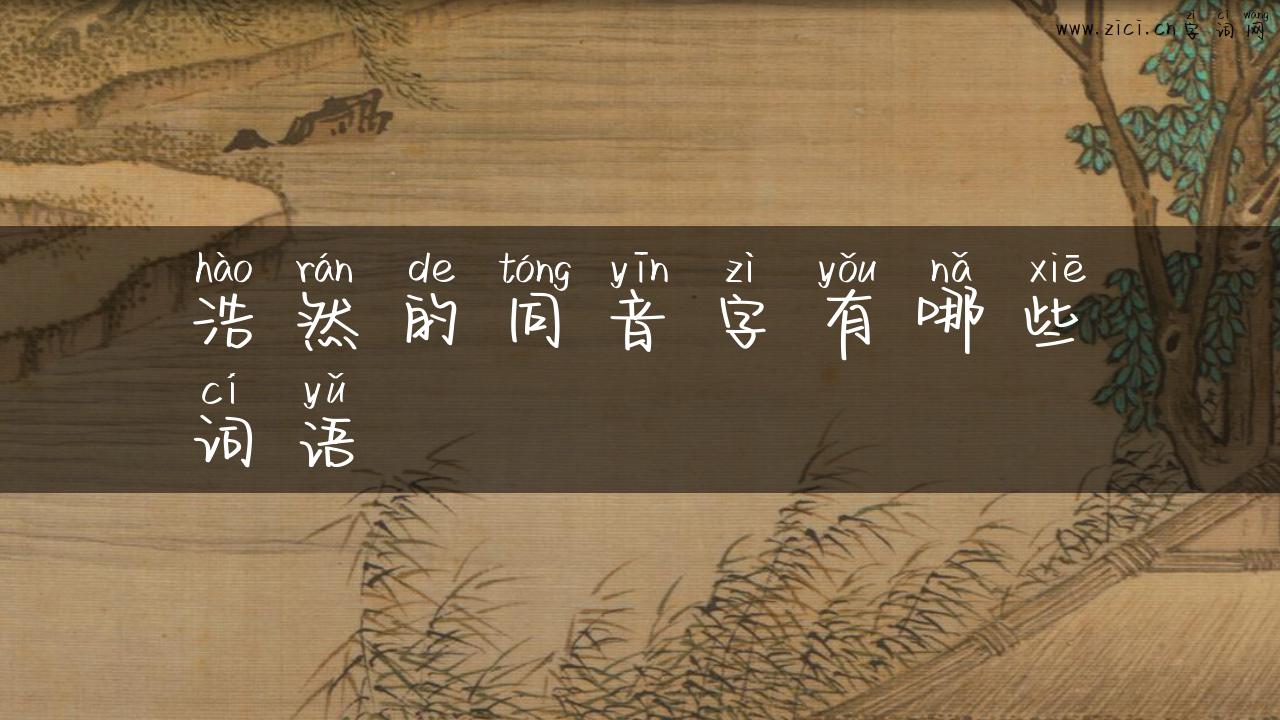 zì cí wǎng
www.zici.cn字词网
hào rán de tóng yīn zì yǒu nǎ xiē
浩然的同音字有哪些
cí yǔ
词语